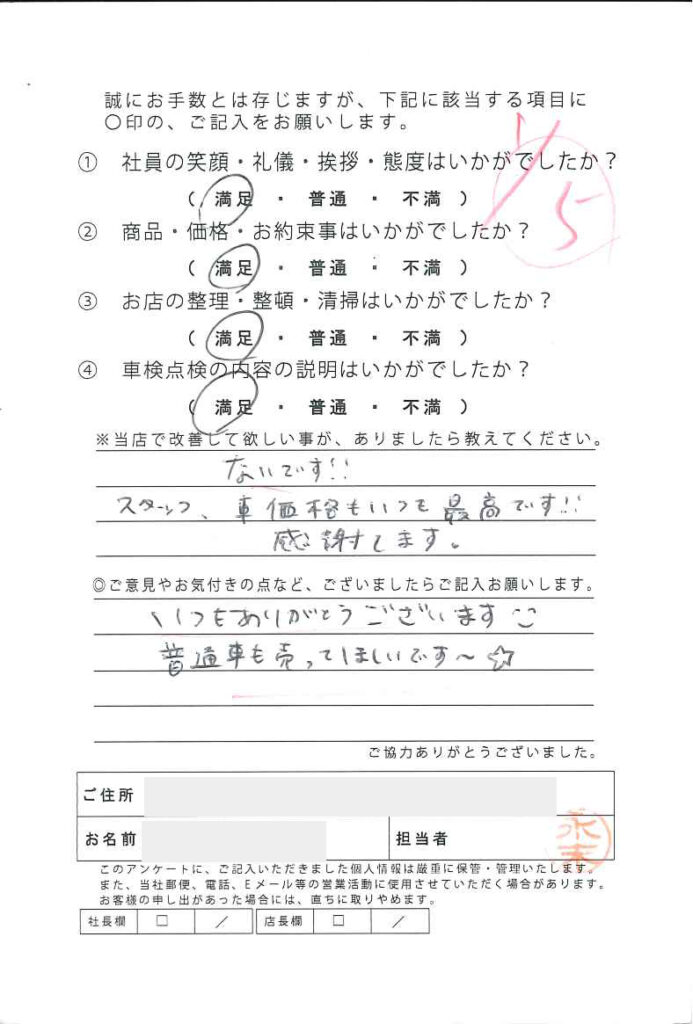 誠にお手数とは存じますが、下記に該当する項目に
〇印の、ご記入をお願いします。
1/5
① 社員の笑顔・礼儀・挨拶・態度はいかがでしたか？
( 満足 ・ 普通 ・ 不満 )
② 商品・価格・お約束事はいかがでしたか？
( 満足 ・ 普通 ・ 不満 )
③ お店の整理・整頓・清掃はいかがでしたか？
( 満足 ・ 普通 ・ 不満 )
④ 車検点検の内容の説明はいかがでしたか？
( 満足 ・ 普通 ・ 不満 )
※当店で改善して欲しい事が、ありましたら教えてください。
ないです!!
スタッフ、車価格もいつも最高です!!
感謝してます。
◎ご意見やお気付きの点など、ございましたらご記入お願いします。
いつもありがとうございます
普通車も売ってほしいです〜☆
ご協力ありがとうございました。
ご住所
お名前 担当者 永末
このアンケートに、ご記入いただきました個人情報は厳重に保管・管理いたします。
また、当社郵便、電話、Eメール等の営業活動に使用させていただく場合があります。
お客様の申し出があった場合には、直ちに取りやめます。
社長欄 □ ／ 店長欄 □ ／